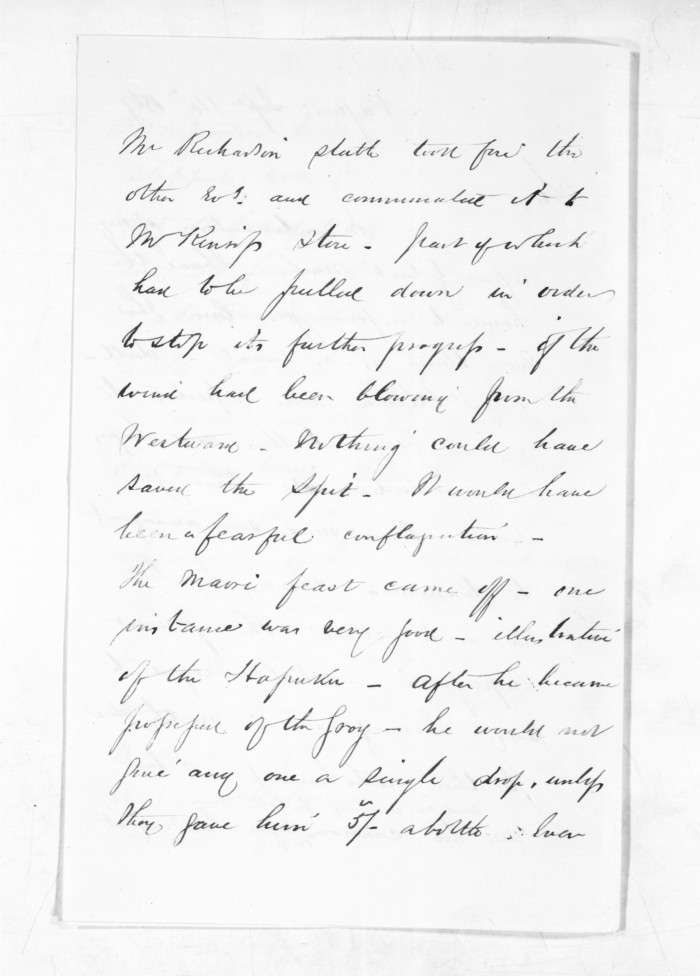 Mr Richardson stable took fire the
other Evg: and communicated it to
McKinsifs Store - part of which
had to be pulled down in order
to stop its further progress - if the
wind had been blowing from the
Westward - Nothing could have
saved the Spit - It would have
been a fearful conflagration -
The Maori feast came off - one
instance was very good - illustrative
of the Hapuku - After he became
possessed of the Grog - he would not
give any one a single drop, unless
they gave him 5/- a bottle : Even